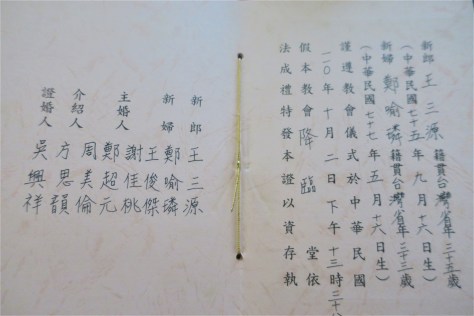 新郎 王三源 籍貫台灣省年三十五歲
(中華民國七十五年九月十六日生)
新婦 鄭喻璘 籍貫台灣省年三十三歲
(中華民國七十七年五月十六日生)
謹遵教會儀式於中華民國
一一〇年十月二日下午十三時三十
假本教會 降臨 堂依
法成禮特發本證以資存執
新郎 王三源
新婦 鄭喻璘
王俊傑
主婚人 謝佳桃
鄭超元
介紹人 周美倫
方思韻
證婚人 吳興祥